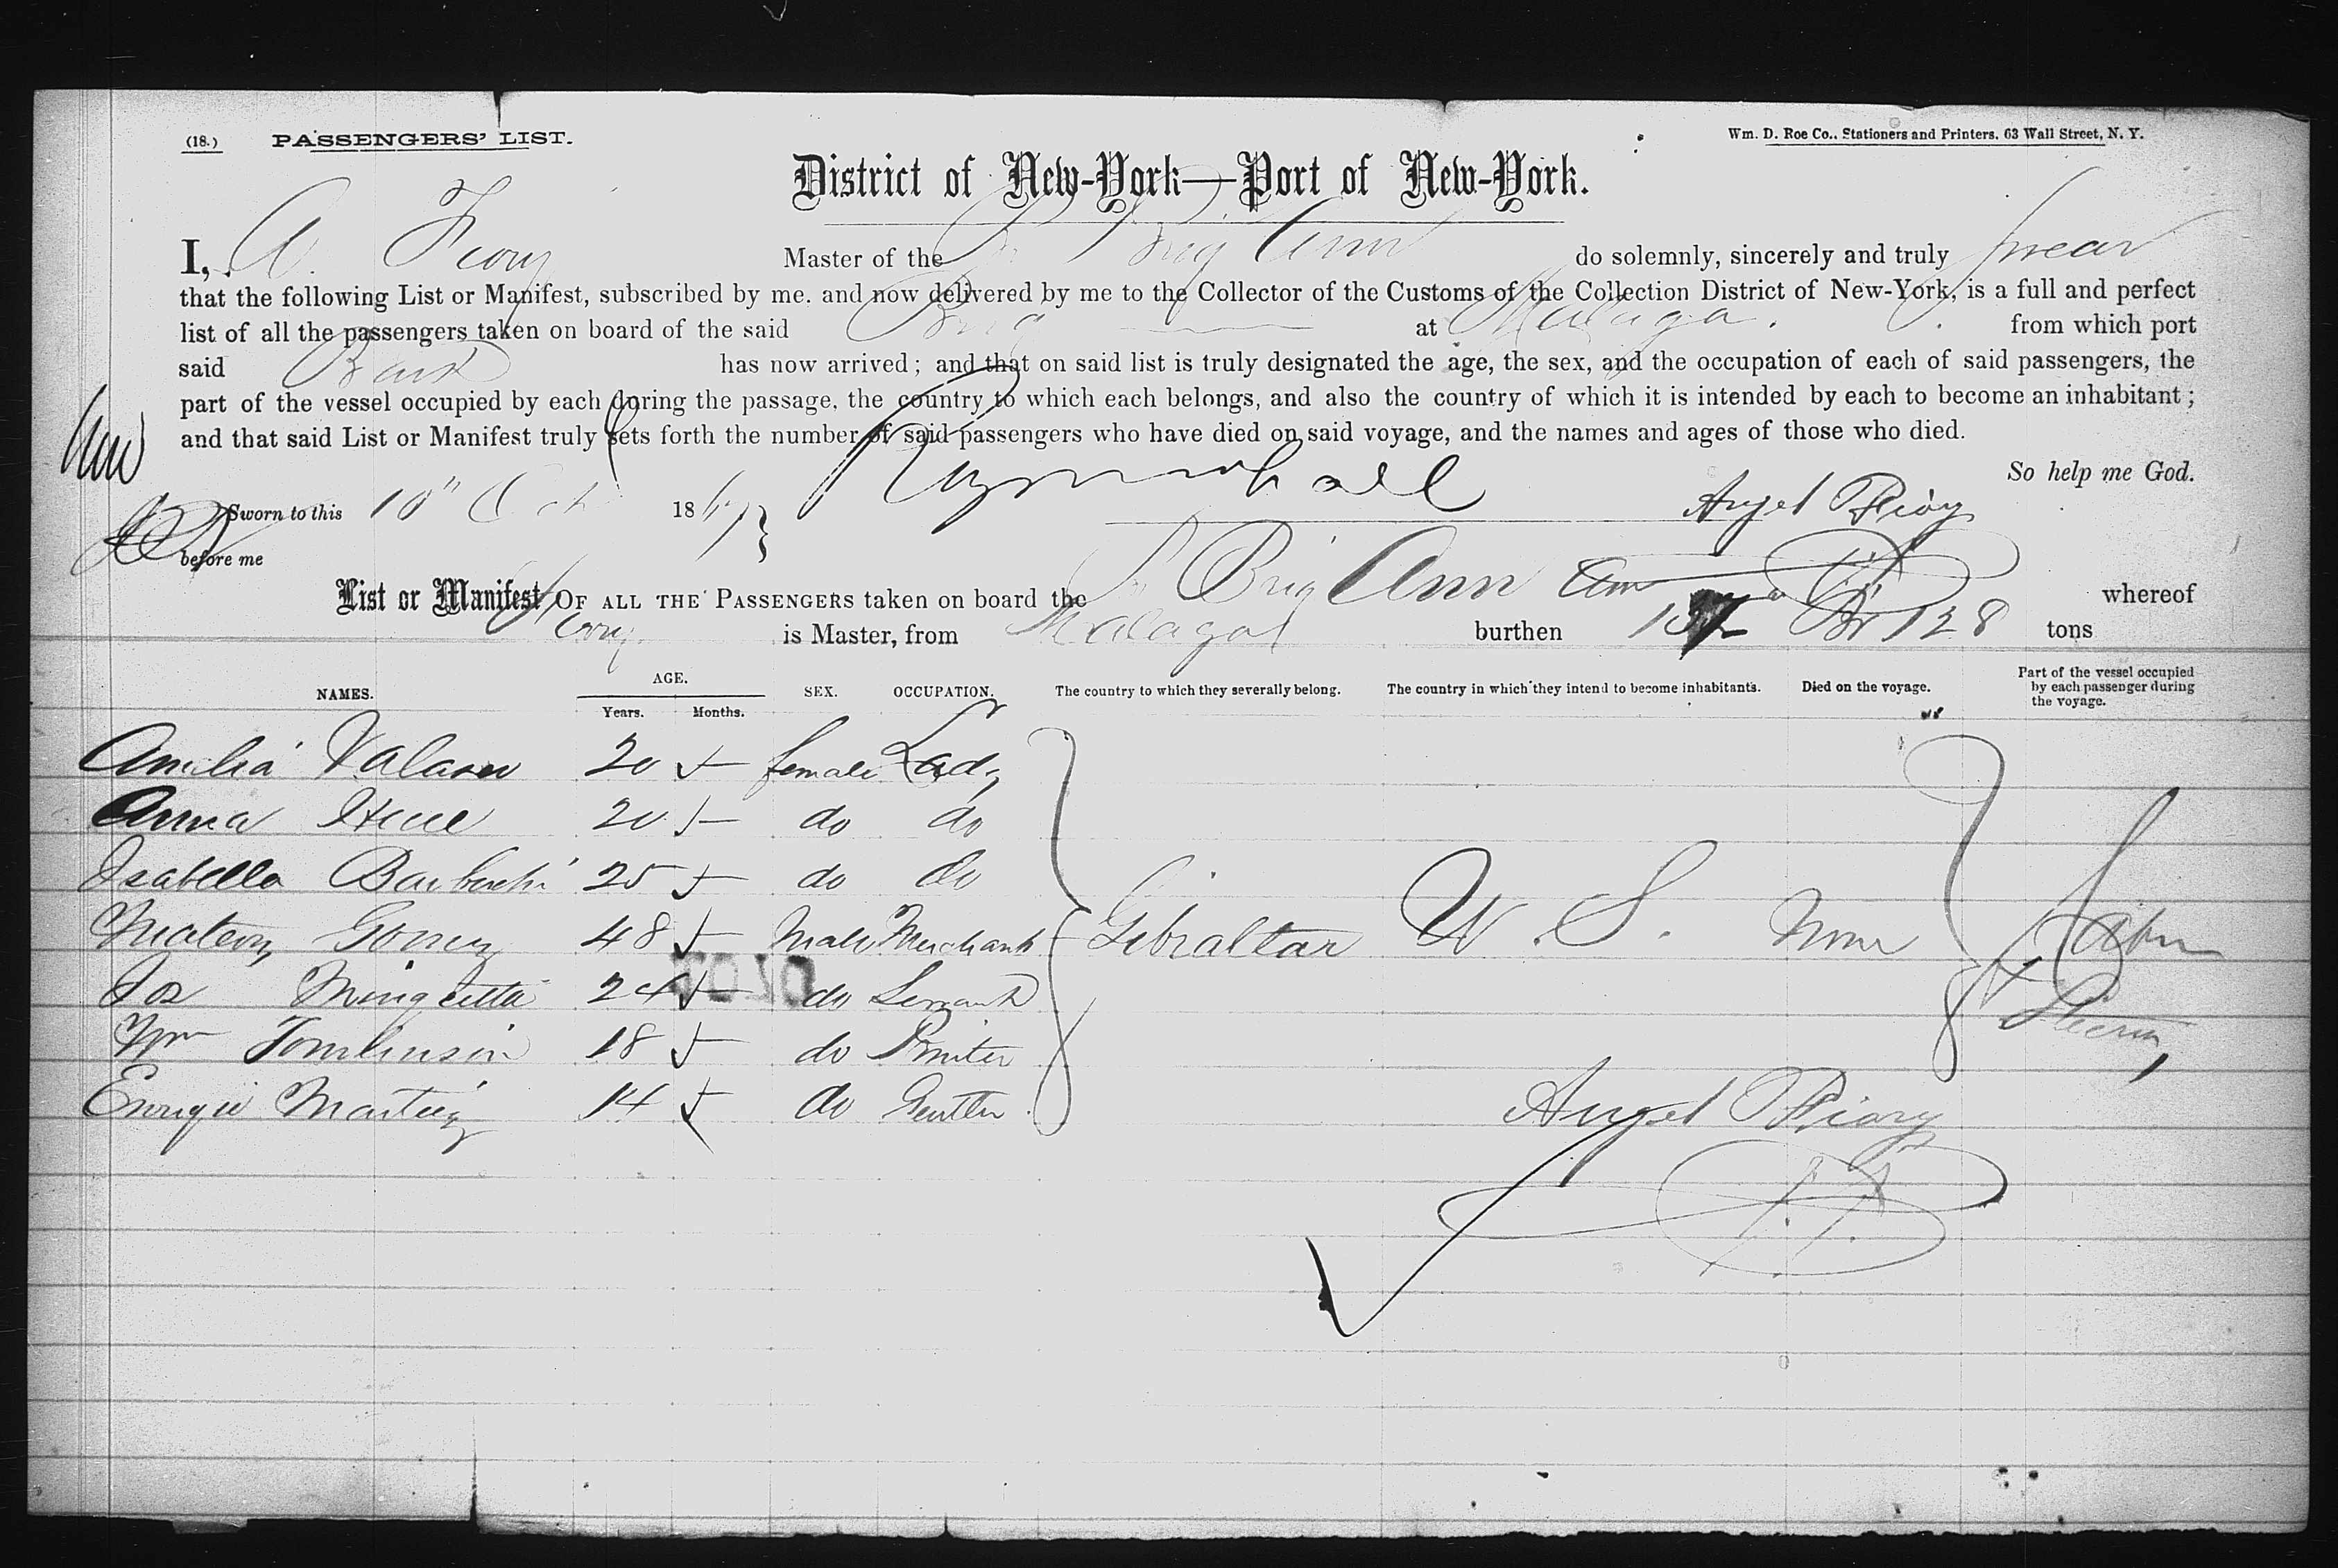 (18.) PASSENGERS' LIST.
Wm. D. Roe Co., Stationers and Printers, 63 Wall Street, N. Y.
District of New-York—Port of New-York.
I, A. Master of the Brig Ann do solemnly, sincerely and truly swear
that the following List or Manifest, subscribed by me, and now delivered by me to the Collector of the Customs of the Collection District of New-York, is a full and perfect
list of all the passengers taken on board of the said Brig at Malaga. from which port
said Bark has now arrived; and that on said list is truly designated the age, the sex, and the occupation of each of said passengers, the
part of the vessel occupied by each during the passage, the country to which each belongs, and also the country of which it is intended by each to become an inhabitant;
and that said List or Manifest truly sets forth the number of said passengers who have died on said voyage, and the names and ages of those who died.
So help me God.
Sworn to this 10" Oct 1867 } Angel
before me
List or Manifest OF ALL THE PASSENGERS taken on board the Brig Ann whereof
is Master, from Malaga burthen Br 128 tons
NAMES. AGE. SEX. OCCUPATION. The country to which they severally belong. The country in which they intend to become inhabitants. Died on the voyage. Part of the vessel occupied by each passenger during the voyage.
Years. Months.
Amilia 20 female Lady
Anna 20 do do
Isabella 25 do do
Gomez 48 Male Merchant Gibraltar U. S. None Cabin
24 do Servant
Wm Tomlinson 18 do Printer
Enrique Martinez 14 do
Angel